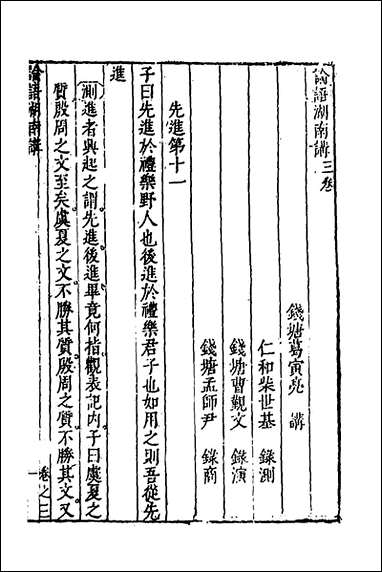 論語湖南講三卷
錢塘葛寅亮　講
仁和柴世基　錄測
錢塘曹觀文　錄演
錢塘孟師尹　錄商
先進第十一
子曰先進於禮樂野人也後進於禮樂君子也如用之則吾從先
進
測進者興起之謂。先進。後進畢竟何指。觀表記內。子曰虞夏之
質殷周之文至矣。虞夏之文。不勝其質。殷周之質。不勝其文。又
論語湖南講
卷之三
一